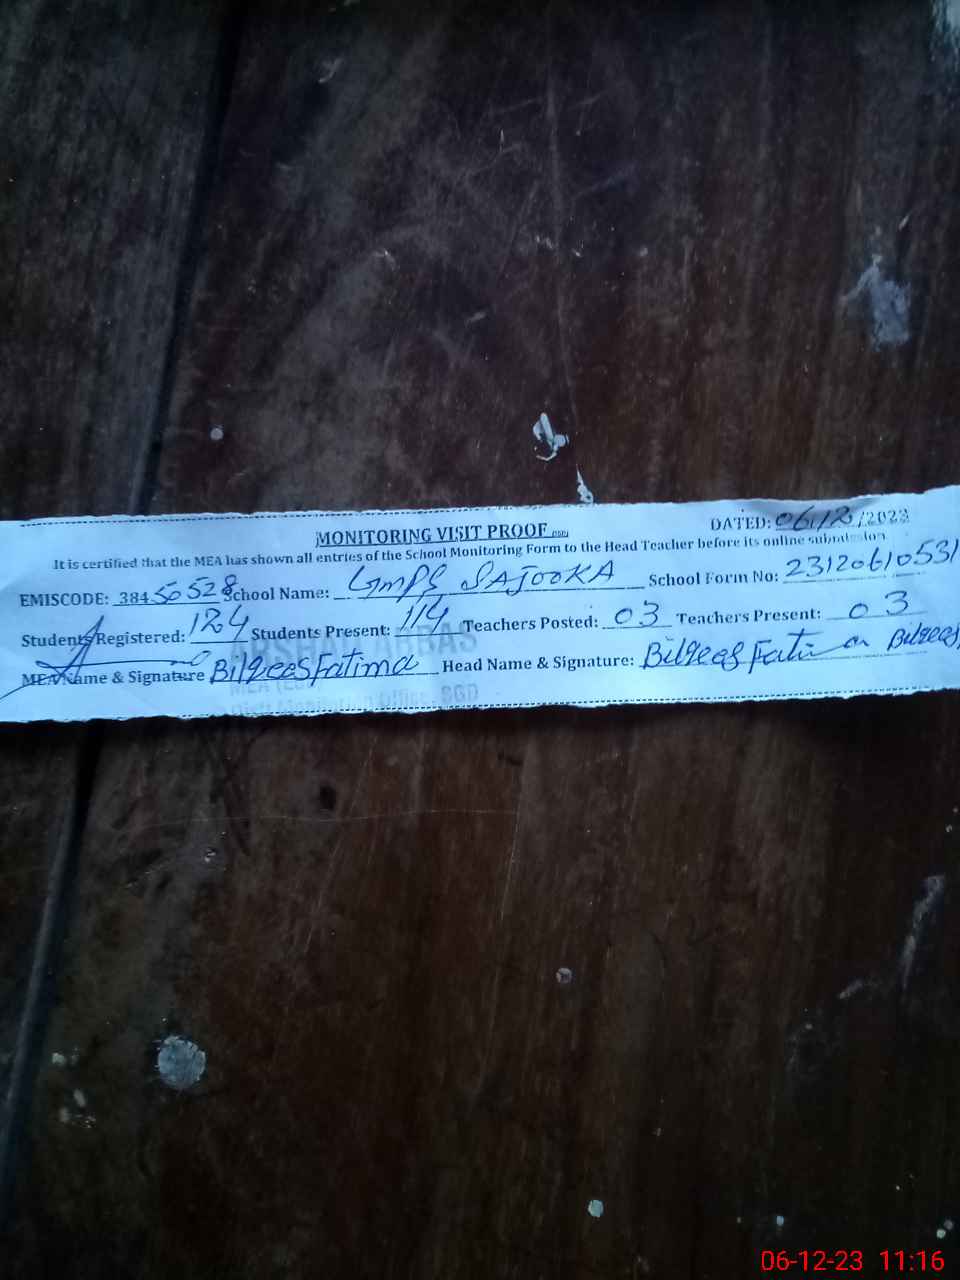 DATED: 06/12/2023
MONITORING VISIT PROOF
It is certified that the MEA has shown all entries of the School Monitoring Form to the Head Teacher before its online submission
EMISCODE: 38450528 School Name: GMPS SAJOOKA School Form No: 23120610531
Students Registered: 124 Students Present: 114 Teachers Posted: 03 Teachers Present: 03
MEA Name & Signature Bilqees Fatima Head Name & Signature: Bilqees Fatima Bilqees
ARSHAD ABBAS
MEA
Distt Monitoring Officer SGD
06-12-23 11:16